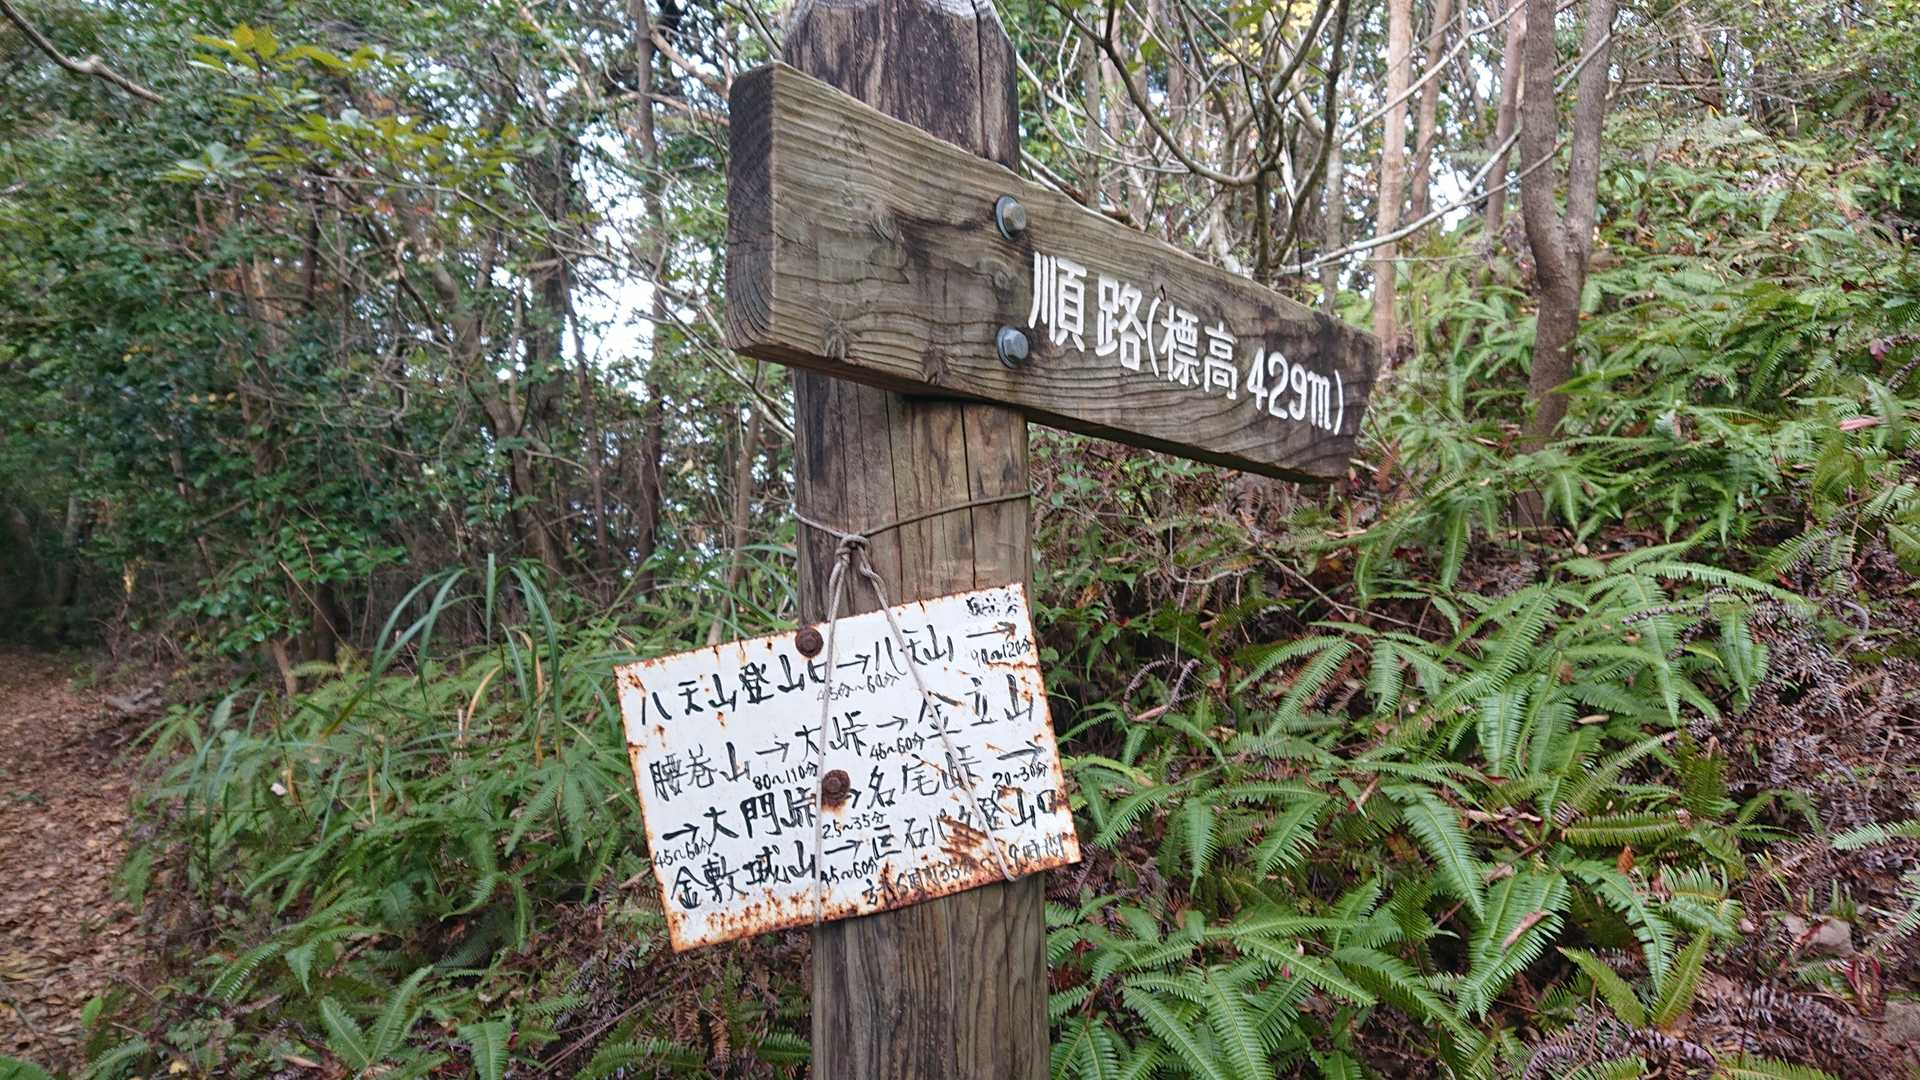 順路(標高429m)
八天山登山口→八天山→
45分~60分 90~120分
腰巻山→大峠→金立山
80~110分 46~60分
→大門峠→名尾峠→
45~60分 25~35分 20~30分
金敷城山→巨石パーク登山口
45~60分